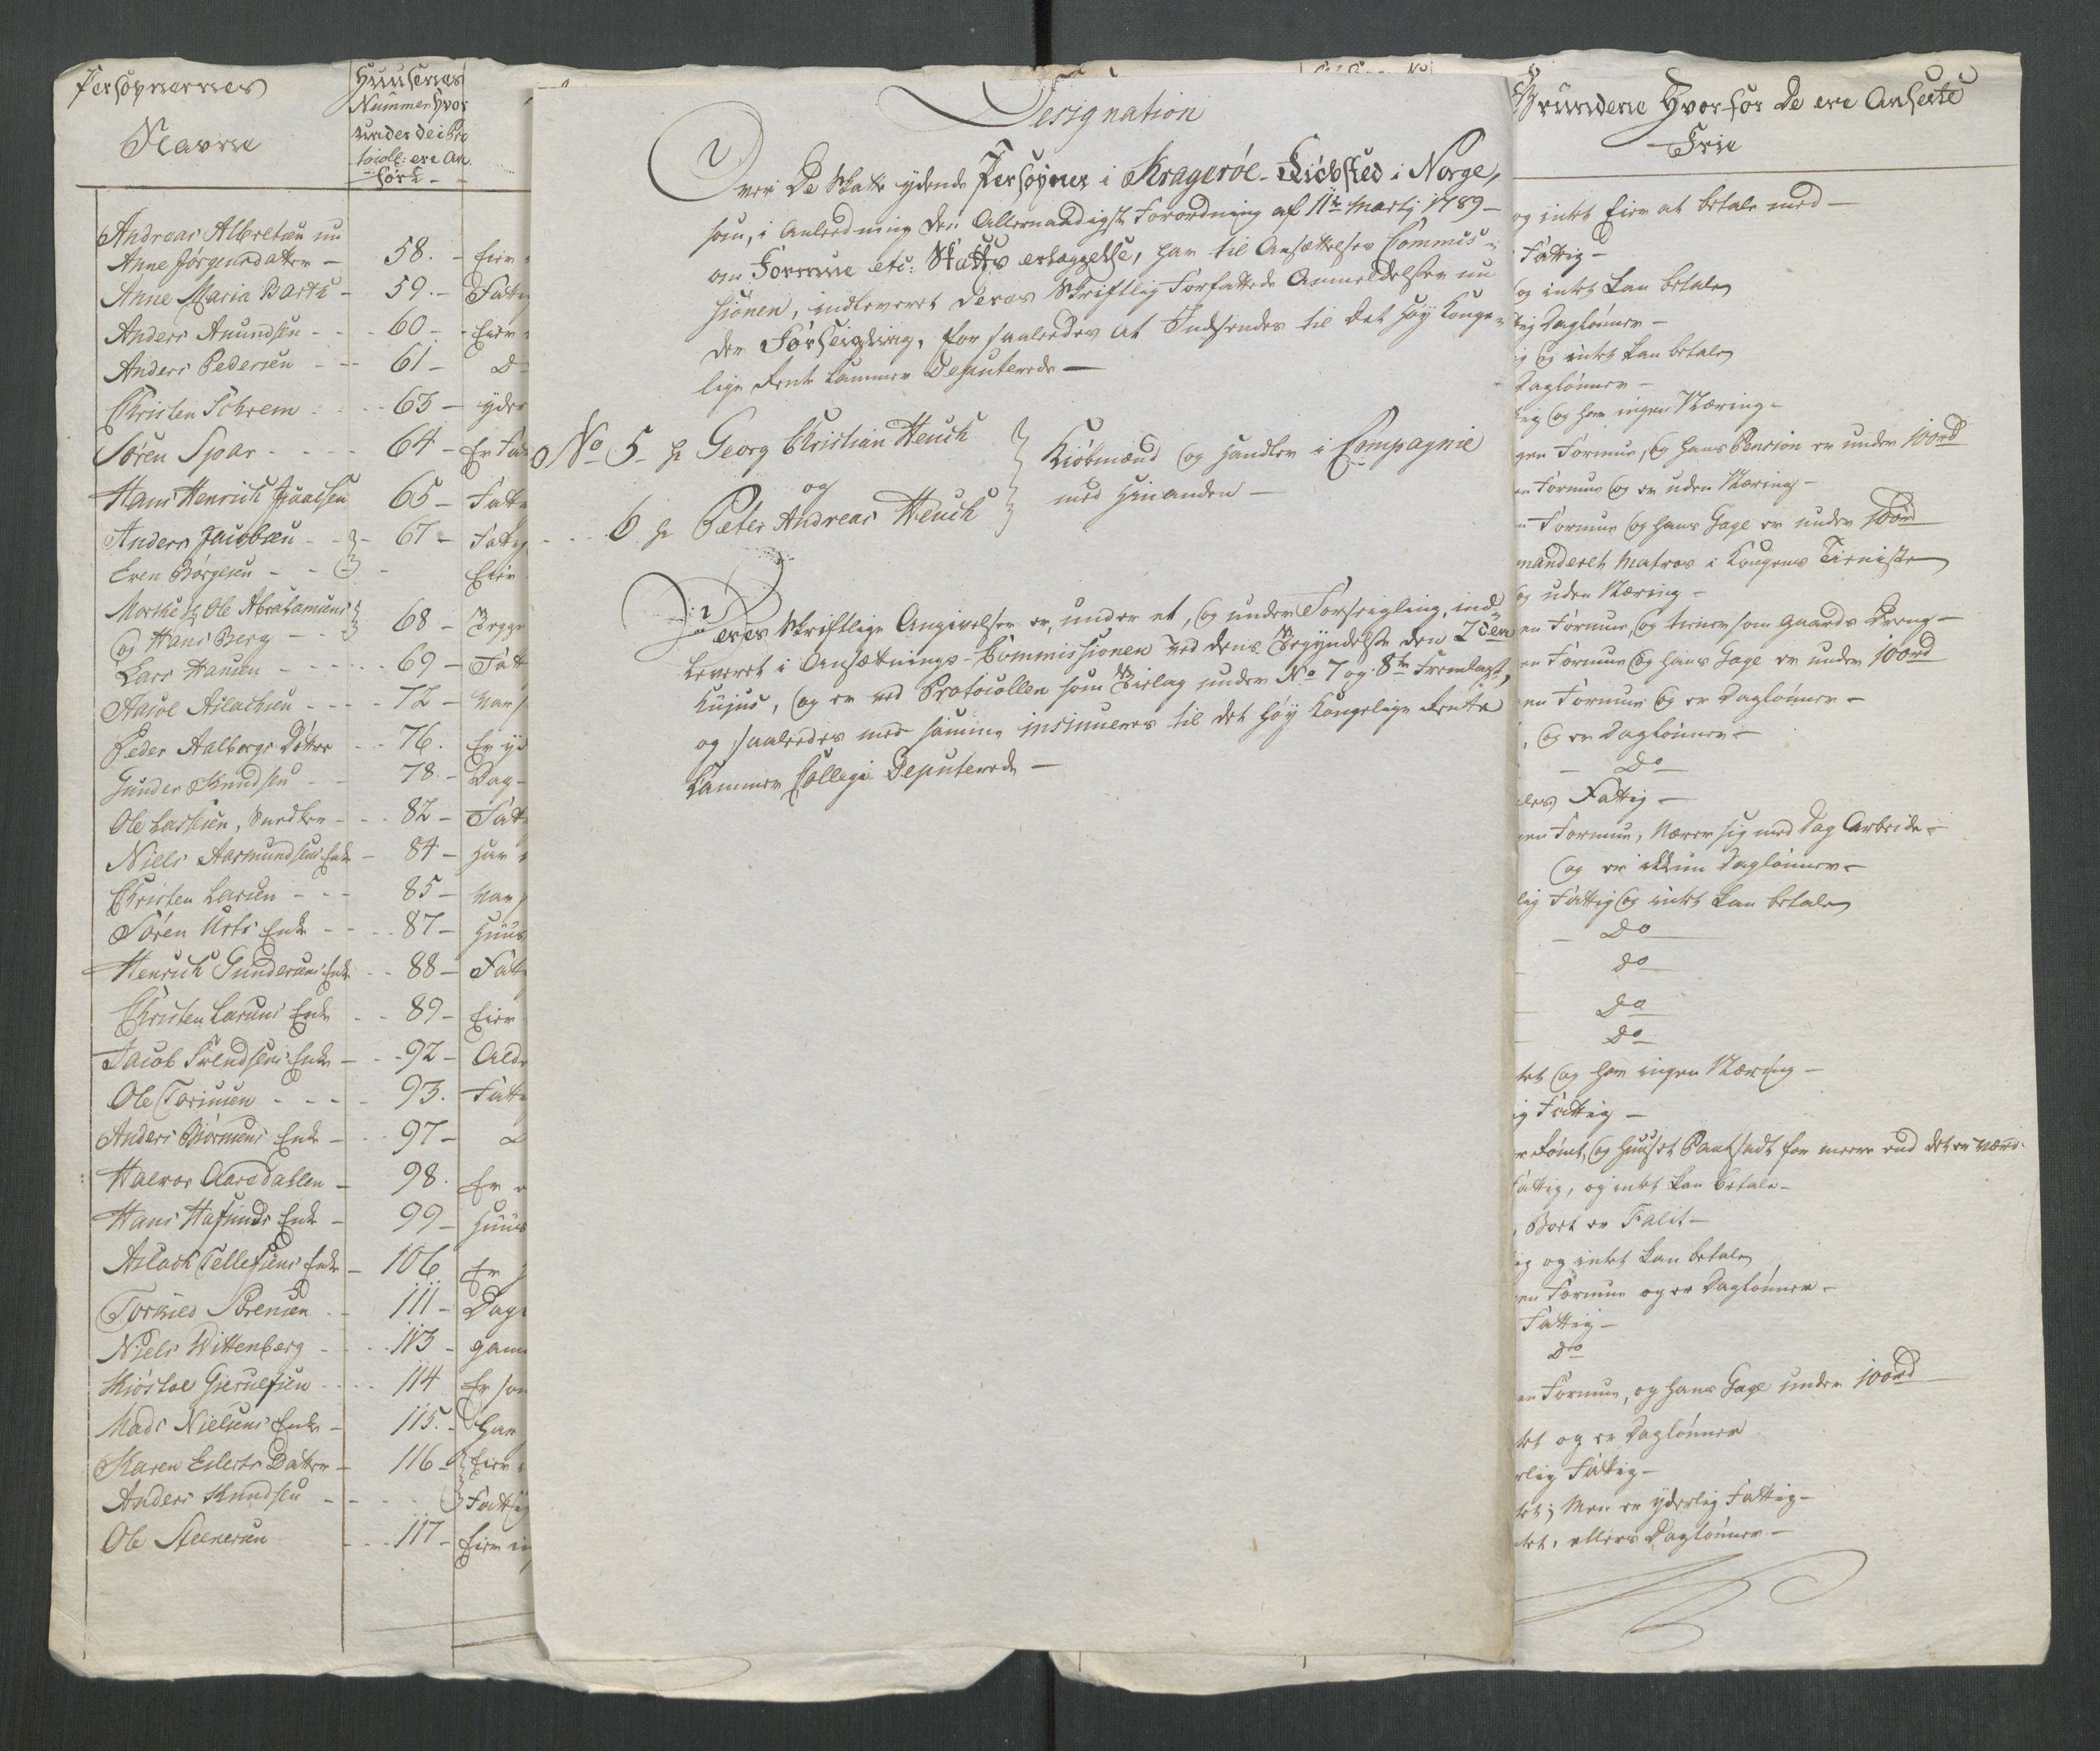 Persohnernes
Navne
Huusenes
Nummer hvor
under de i Pro
tocoll: ere An
ført
Andreas Albretsen nu
Anne Jørgensdatter - 58. - Eier
Anne Maria Barth - 59. - Fattig
Anders Anundsen - - - 60 - Eier
Anders Pedersen - - 61 - D
Christen Schrem - - - 63 - yder
Søren Spar - - - - 64 - Er
Hans Henrich Juulsen 65 - Fatt
Anders Jacobsen - - 67 - Fattig
Even Børgesen - - - Eier
Marthe Ole Abrahamsens
og Hans Berg - - 68 - Bryge
Lars Hansen - - - - - 69 - Fatt
Aslachsen - - - - 72 - Nær
Peder Aalborgs Døttre - - 76. Er yd
Gunder Knudsen - - 78 - Dag-
Ole Larsen, Snedker - - - 82 - Fatt
Niels Aasmundsens Enke - 84 - Har
Christen Larsen - - - 85 - Nær
Søren Urts Enke - - - 87 - Huus
Henrich Gundersens Enke - - 88 - Fatt
Christen Larsens Enke - - 89 - Eier
Jacob Svendsens Enke - - - 92 - Alde
Ole - - - - 93. Fatt
Anders Biørnsens Enke - - 97 -
Halvor Aarsdahlen - 98. Er
Hans Enke - 99 - Huus
Aslach Tellefsens Enke - 106 Er
Torkild Sørensen - - 111 - Dag
Niels Wittenberg - - - 113 - gam
Kiøstol - - - 114 Er
Mads Nielsens Enke - 115. - Har
Karen Eilerts Datter - 116 - Eier
Anders Knudsen - - - Fattig
Ole Steenersen - - - 117 - Eier in
Designation
Over De Skatte ydende Persohner i Kragerøe Kiøbsted i Norge,
som, i Anledning den Allernaadigste Forordning af 11te Martj 1789 -
om Formue etc: Skatts erlæggelse, har til Ansættelses Commis-
sionen, indleveret deres Skriftlig Forfattede Anmeldelser un
der Forseigling, for saaledes at Indsendes til det høy Konge-
lige Rente Kammer Deputerede -
No 5 hr Georg Christian Heuch
og
6 hr Peter Andreas Heuch
Kiøbmænd og handler i Compagnie
med hinanden -
Deres Skriftlige Angivelser er, under et, og under Forseigling, ind-
leveret i Ansætnings-Commissionen ved dens Begyndelse den 2den
hujus, og er ved Protocollen som Bielag under No 7 og 8te Fremlagt,
og saaledes med samme insinueres til det høy Kongelige Rente
Kammer Collegii Deputerede -
Grundene Hvorfor De ere Ansette
Frie
og intet Eier at betale med -
Fattig -
og intet kan betale
Dagløнner -
og intet kan betale
Dagløнner -
og har ingen Næring -
gen Formue, og hans Pension er under 100rd
en Formue og er uden Næring -
Formue og hans Gage er under 100rd
manderet Matros i Kongens Tieniste
og uden Næring -
en Formue, og tiener som Gaards Dreng -
en Formue og hans Gage er under 100rd
en Formue og er Dagløнner -
, og er Dagløнner -
- Do -
Fattig -
en Formue, Nærer sig med Dag Arbeide -
og er Dagløнner -
lig Fattig og intet kan betale
- Do
do
Do
Do
tet og har ingen Næring -
ig Fattig -
og Huuset Pantsadt for meere end det er værd.
Fattig, og intet kan betale -
, Bort er Falit -
ig og intet kan betale
en Formue og er Dagløнner -
Fattig -
do
en Formue, og hans Gage under 100rd
tet og er Dagløнner
rlig Fattig -
tet; Men er yderlig Fattig -
tet, ellers Dagløнner -